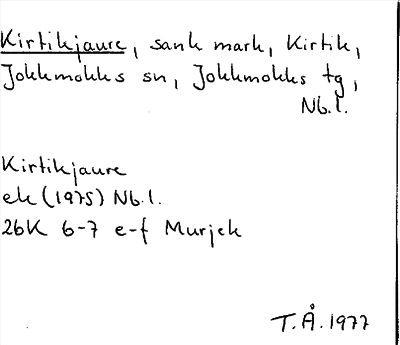 Kirtikjaure, sank mark, Kirtik,
Jokkmokks sn, Jokkmokks tg,
Nb.l.
Kirtikjaure
ek (1975) Nb.l.
26K 6-7 e-f Murjek
T.Å. 1977